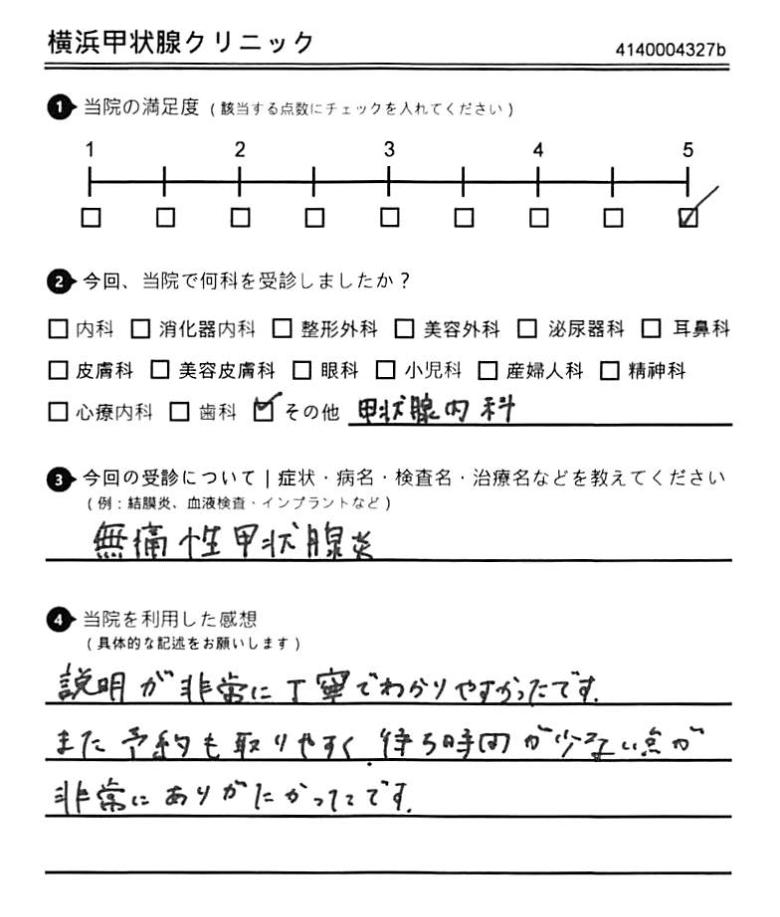 横浜甲状腺クリニック 4140004327b
1 当院の満足度 (該当する点数にチェックを入れてください)
1 2 3 4 5
2 今回、当院で何科を受診しましたか?
□ 内科 □ 消化器内科 □ 整形外科 □ 美容外科 □ 泌尿器科 □ 耳鼻科
□ 皮膚科 □ 美容皮膚科 □ 眼科 □ 小児科 □ 産婦人科 □ 精神科
□ 心療内科 □ 歯科 ☑ その他 甲状腺内科
3 今回の受診について | 症状・病名・検査名・治療名などを教えてください
(例:結膜炎、血液検査・インプラントなど)
無痛性甲状腺炎
4 当院を利用した感想
(具体的な記述をお願いします)
説明が非常に丁寧でわかりやすかったです.
また予約も取りやすく、待ち時間が少ない点が
非常にありがたかったです.